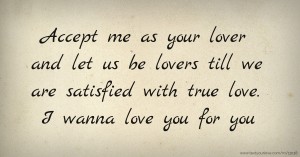 Accept me as your lover
and let us be lovers till we
are satisfied with true love.
I wanna love you for you